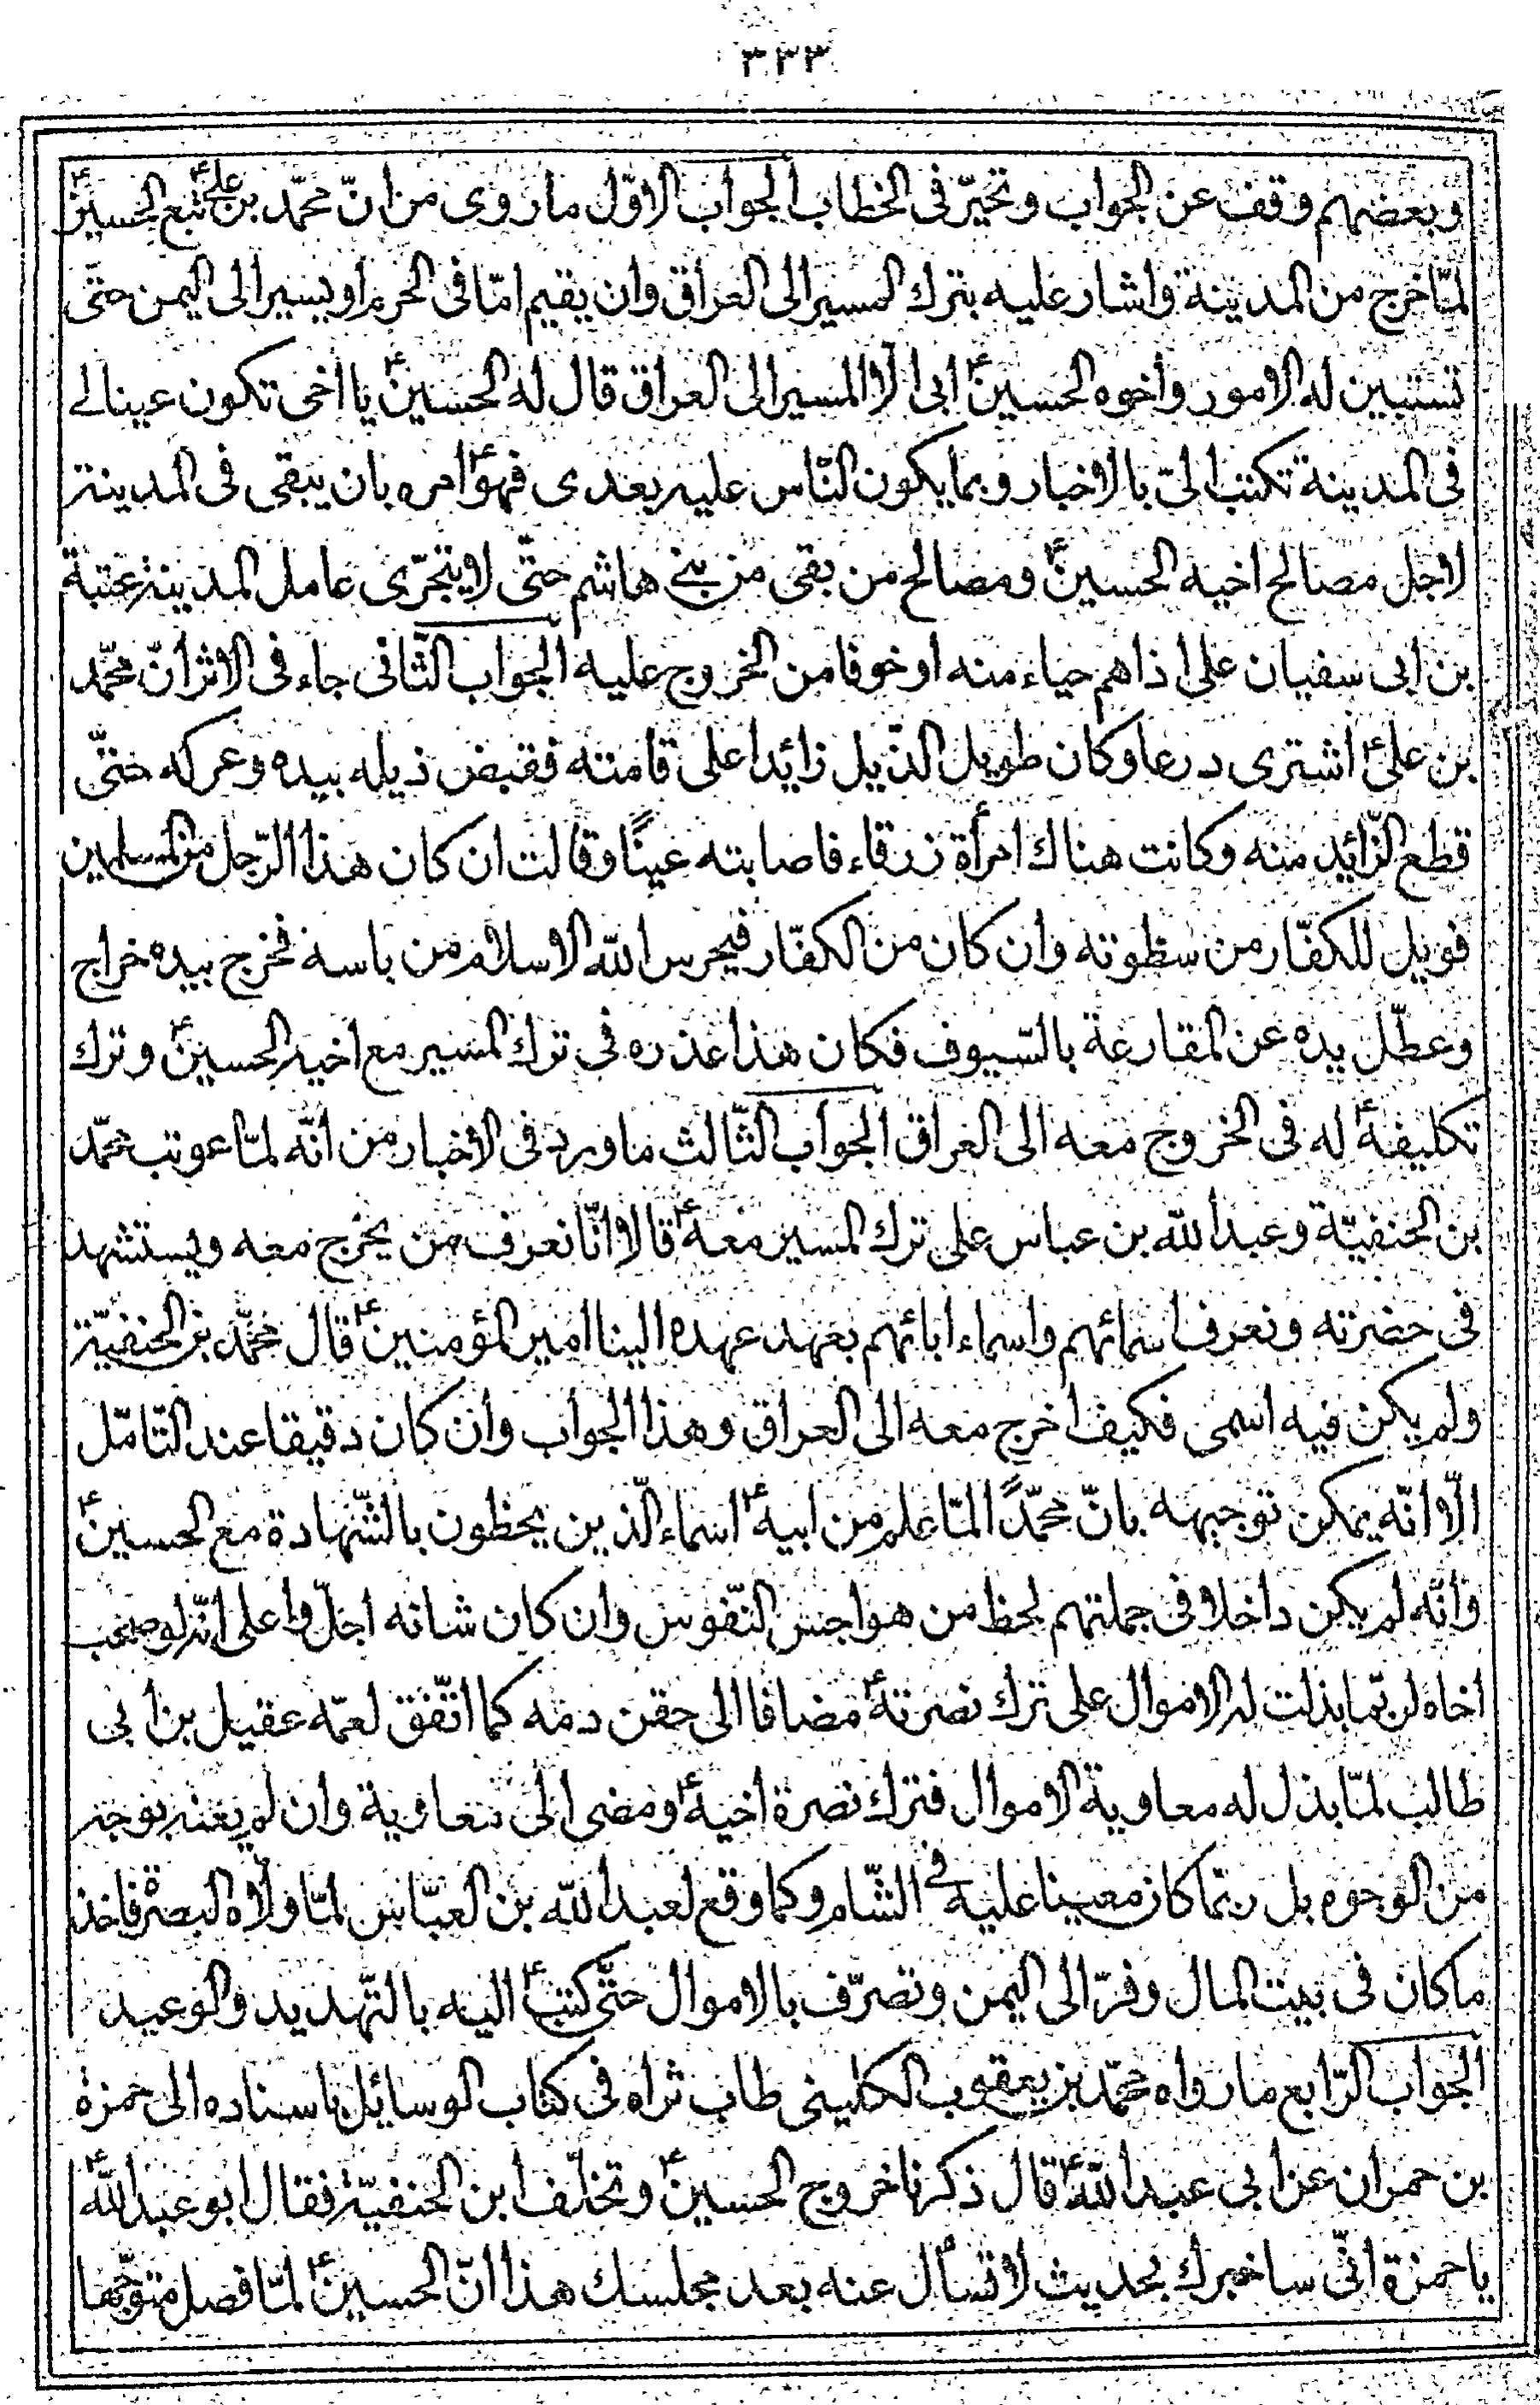 ٣٢٣
وبعضهم وقف عن الجواب وتحيّر فى الخطاب الجواب الاوّل ما روى من انّ محمّد بن علىؑ تبع الحسينؑ
لمّا خرج من المدينة واشار عليه بترك المسير الى العراق وان يقيم امّا فى الحرم او يسير الى اليمن حتّى
تستبين له الامور واخوه الحسينؑ ابى الّا المسير الى العراق قال له الحسينؑ يا اخى تكون عينا لے
فى المدينة تكتب الىّ بالاخبار وبما يكون النّاس عليه بعدى فهوؑ امره بان يبقى فى المدينة
لاجل مصالح اخيه الحسينؑ ومصالح من بقى من بنے هاشم حتّى لا يتجرّى عامل المدينة عتبة
بن ابى سفيان على اذاهم حياء منه او خوفا من الخروج عليه الجواب الثّانى جاء فى الاثر انّ محمّد
بن علىؑ اشترى درعا وكان طويل الذّيل زائدا على قامته فقبض ذيله بيده وعركه حتّى
قطع الزّائد منه وكانت هناك امرأة زرقاء فاصابته عينًا وقالت ان كان هذا الرّجل من المسلمين
فويل للكفّار من سطوته وان كان من الكفّار فيحرس الله الاسلام من باسه فخرج بيده خراج
وعطّل يده عن المقارعة بالسّيوف فكان هذا عذره فى ترك المسير مع اخيه الحسينؑ وترك
تكليفهؑ له فى الخروج معه الى العراق الجواب الثّالث ما ورد فى الاخبار من انّه لمّا عوتب محمّد
بن الحنفيّة وعبد الله بن عباس على ترك المسير معهؑ قالا انّا نعرف من يخرج معه ويستشهد
فى حضرته ونعرف اسمائهم واسماء ابائهم بعهد عهده الينا امير المؤمنينؑ قال محمّد بن الحنفيّة
ولم يكن فيه اسمى فكيف اخرج معه الى العراق وهذا الجواب وان كان دقيقا عند التّامّل
الّا انّه يمكن توجيهه بانّ محمّدًا لمّا علم من ابيهؑ اسماء الّذين يحظون بالشّهادة مع الحسينؑ
وانّه لم يكن داخلا فى جملتهم لحظ من هواجس النّفوس وان كان شانه اجلّ واعلى انّه لو صحب
اخاه لربّما بذلت له الاموال على ترك نصرتهؑ مضافا الى حقن دمه كما اتّفق لعمّه عقيل بن ابى
طالب لمّا بذل له معاوية الاموال فترك نصرة اخيهؑ ومضى الى معاوية وان لم يعنه بوجه
من الوجوه بل ربّما كان معينا عليه فى الشّام وكما وقع لعبد الله بن العبّاس لمّا ولّاه البصرة فاخذ
ما كان فى بيت المال وفرّ الى اليمن وتصرّف بالاموال حتّى كتبؑ اليه بالتّهديد والوعيد
الجواب الرّابع ما رواه محمّد بن يعقوب الكلينى طاب ثراه فى كتاب الوسائل باسناده الى حمزة
بن حمران عن ابى عبد اللهؑ قال ذكرنا خروج الحسينؑ وتخلّف ابن الحنفيّة فقال ابو عبد اللهؑ
يا حمزة انّى ساخبرك بحديث لا تسأل عنه بعد مجلسك هذا انّ الحسينؑ لمّا فصل متوجّها